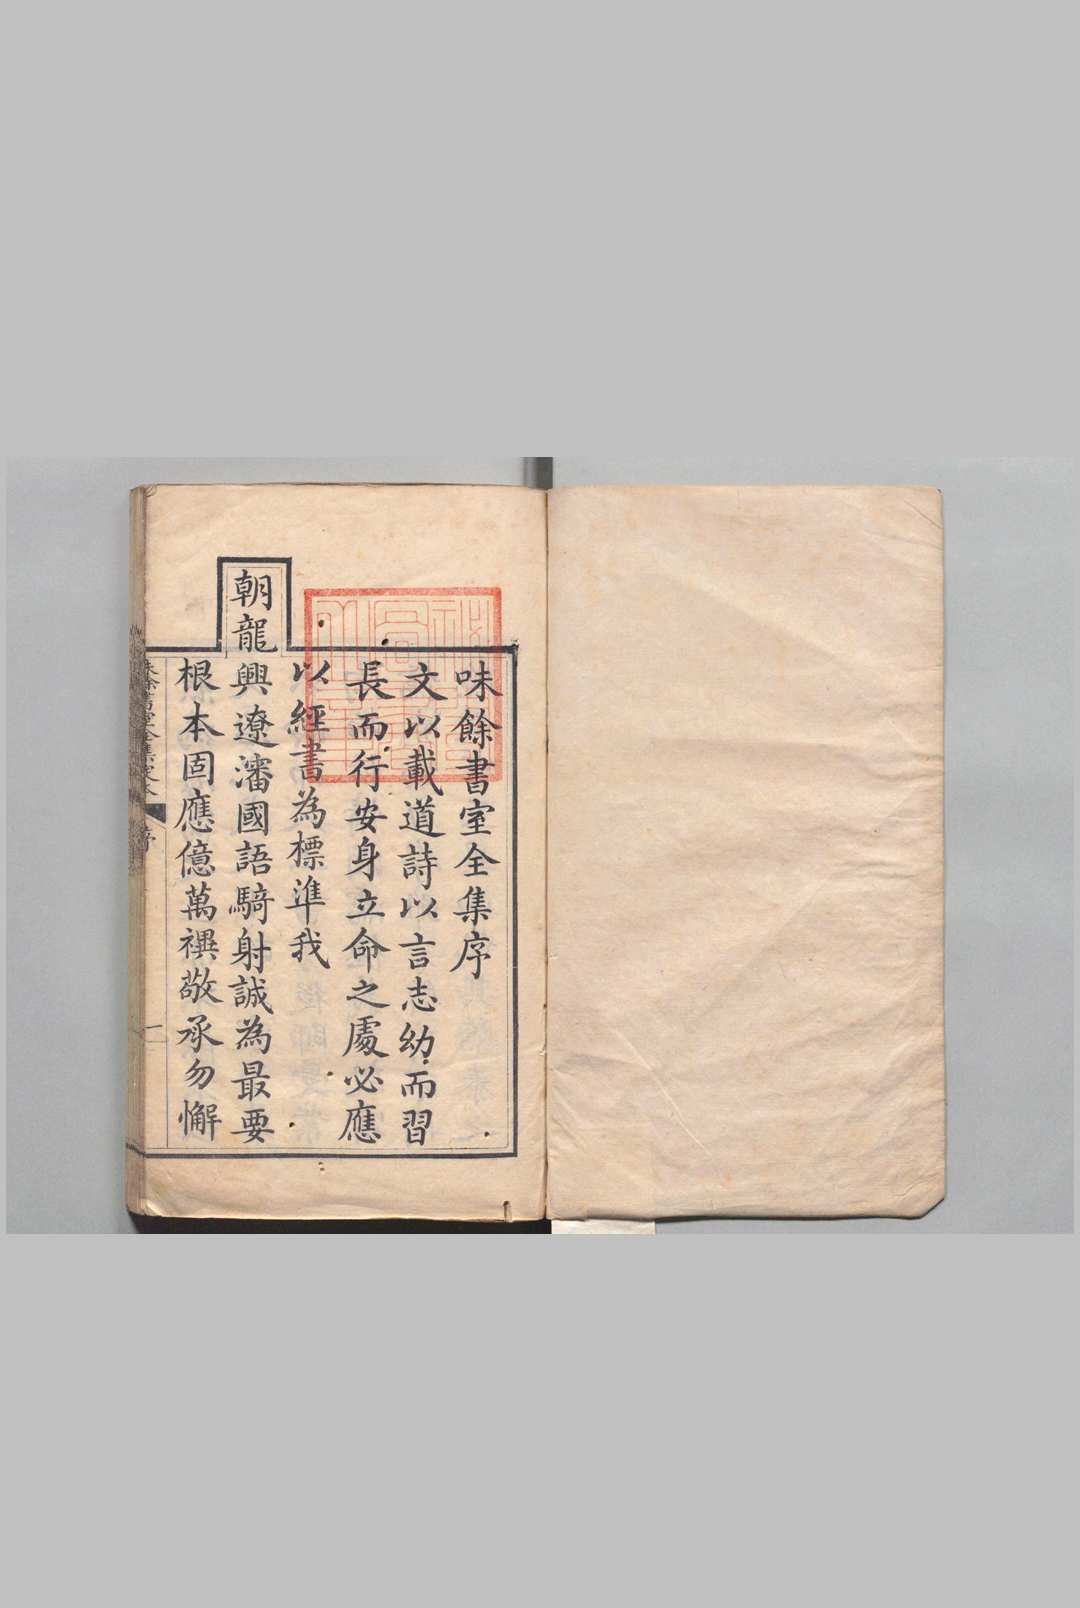 味餘書室全集序
文以載道詩以言志幼而習
長而行安身立命之處必應
以經書為標準我
朝龍興遼瀋國語騎射誠為最要
根本固應億萬禩敬承勿懈